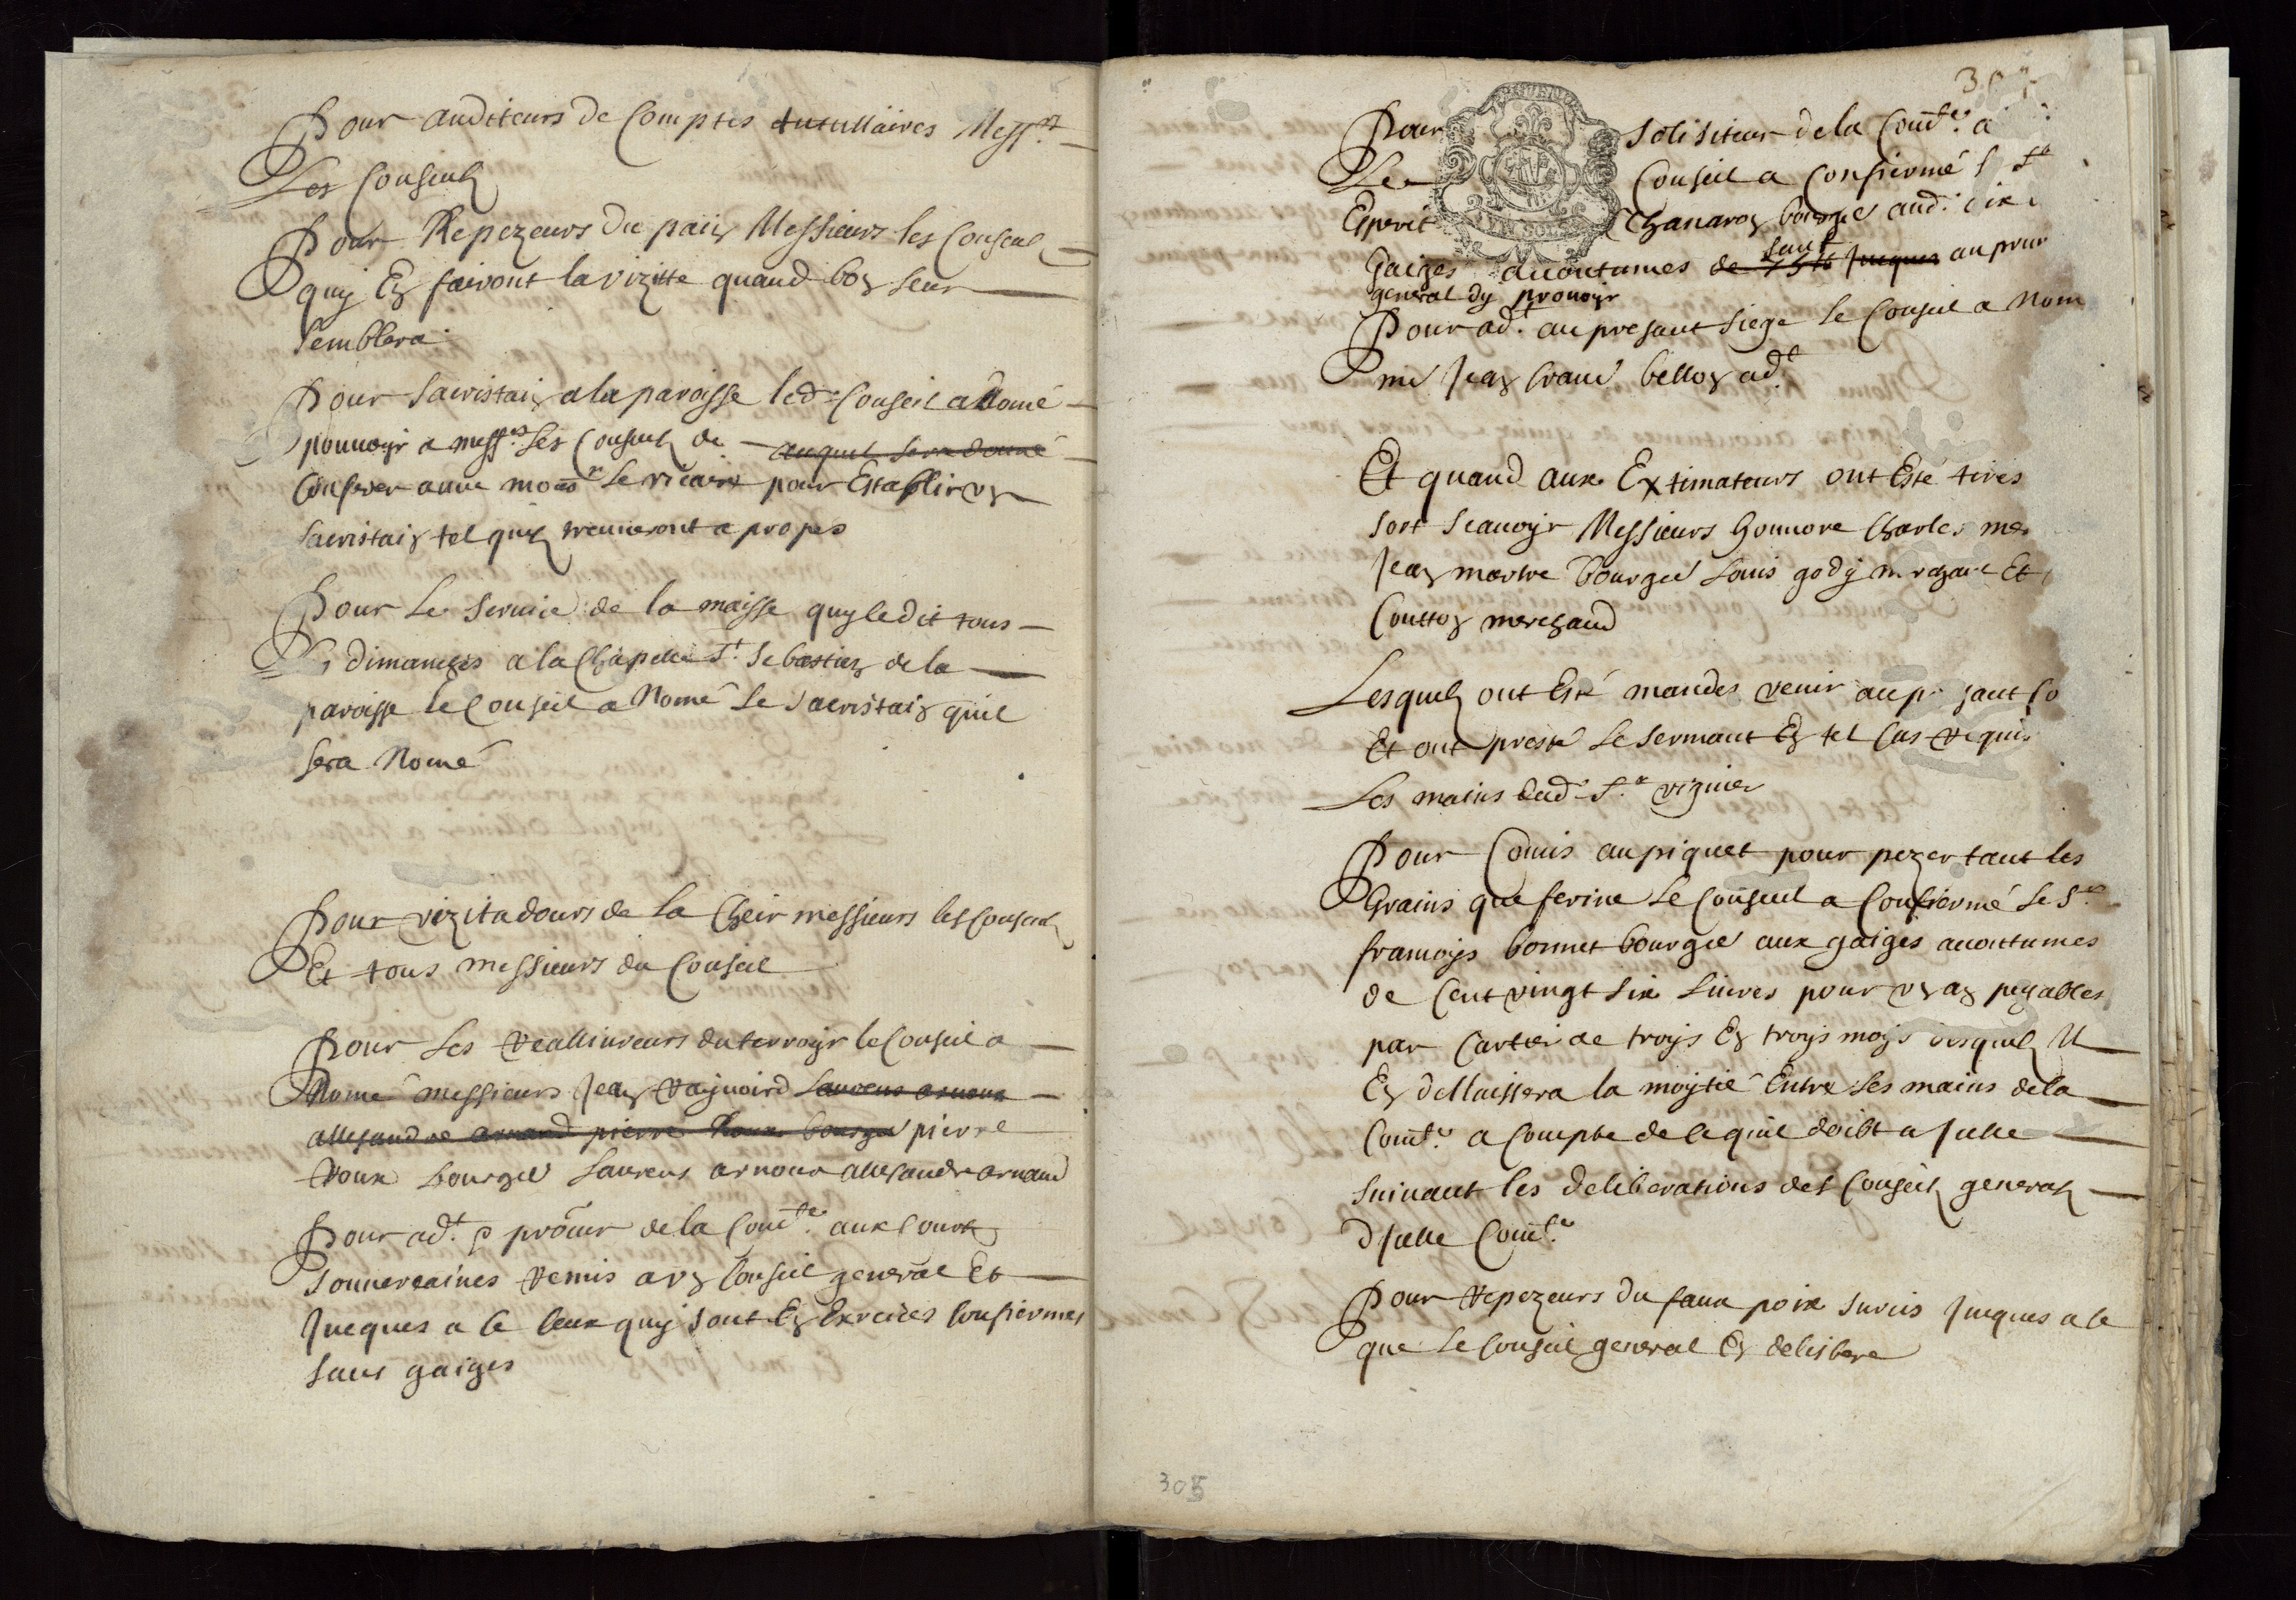 Pour auditeurs de Comptes tutullaires Messrs
Les Conseulz
Pour Repezeurs du pain Messieurs les Conseulz
quy En fairont la vizitte quand bon leur
semblera
Pour sacristain a la paroisse led Conseil a Doné
pouuoyr a messrs les Conseulz de auquel sera donné
Conferer auue monsr le vicaire pour Establir vn
sacristain tel quilz treuueront a propos
Pour le seruice de la maisse quy se dit tous
les dimanches a la Chapelle St Sebastien de la
paroisse le Conseil a Nomé le sacristain quil
sera Nomé
Pour vizitadours de la Cheir messieurs les Conseulz
Et tous messieurs du Conseil
Pour les reallivreurs du terroyr le Conseil a
Nomé messieurs Jean Raynoird Laurens arnoux
allexandre arnaud pierre Roux bourgeo pierre
Roux bourgeo Laurens arnoux allexandre arnaud
Pour adt & procur de la Comte aux Courtz
souueraines remis a vn Conseil general Et
Jucques a ce Ceux quy sont En Exercices Confiermes
sans gaiges
Pour solisiteur de la Comte a
Le Conseil a Confiermé l Sr
Esperit Chanaron bourgeo aud six
Gaiges acoutumes de 75 lt Jucques sauf au prur
general dy prouoyr
Pour adt au presant siege le Conseil a Nom
me Jean bellon adt
Et quand aux Extimateurs ont Esté tires
sort scauoyr Messieurs honnore Charles mer
Jean martre bourgeo Louis gody merchant Et
Coutton merchand
Lesquelz ont Esté mandes venir au p sant Co
Et ont presté le sermant En tel Cas requis
Les mains dud Sr viguier
Pour Comis au piquet pour pezer tant les
Grains que ferine le Conseil a Confiermé le Sr
francoys bonnet bourgeo aux gaiges acoutumes
de Cent vingt six liures pour vn an peyables
par Cartier de troys En troys moys desquelz Il
En dellaissera la moytié Entre les mains de la
Comte a Compte de ce quil doibt a Jcelle
suiuant les deliberations des Conseilz generalz
dJcelle Comte
Pour repezeurs du faux poix surcis Jucques a ce
que le Conseil general En delibere
305